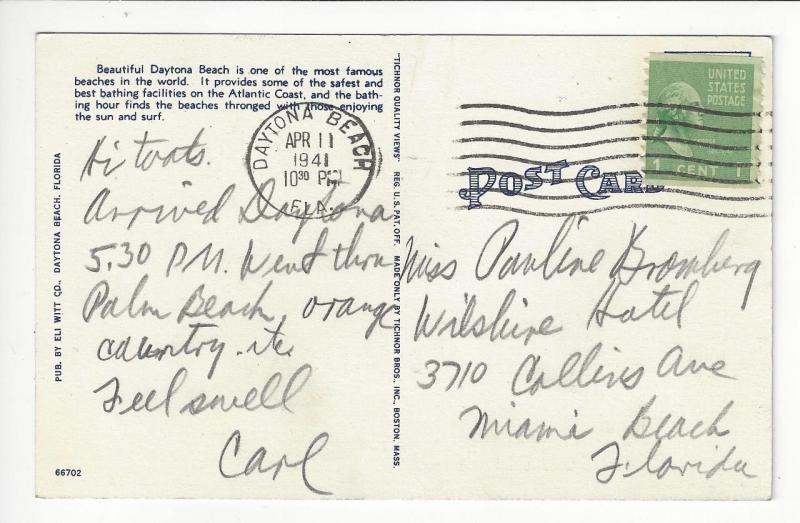 Beautiful Daytona Beach is one of the most famous
beaches in the world. It provides some of the safest and
best bathing facilities on the Atlantic Coast, and the bath-
ing hour finds the beaches thronged with those enjoying
the sun and surf.
Hi Toots.
Arrived Daytona
5.30 P.M. Went thru
Palm Beach, orange
country. etc
Feel swell
Carl
66702
PUB. BY ELI WITT CO., DAYTONA BEACH, FLORIDA
"TICHNOR QUALITY VIEWS" REG. U.S. PAT. OFF. MADE ONLY BY TICHNOR BROS., INC., BOSTON, MASS.
DAYTONA BEACH
APR 11
1941
10 30 PM
FLA.
UNITED
STATES
POSTAGE
1 CENT 1
POST CARD
Miss Pauline Bromberg
Wilshire Hotel
3710 Collins Ave
Miami Beach
Florida